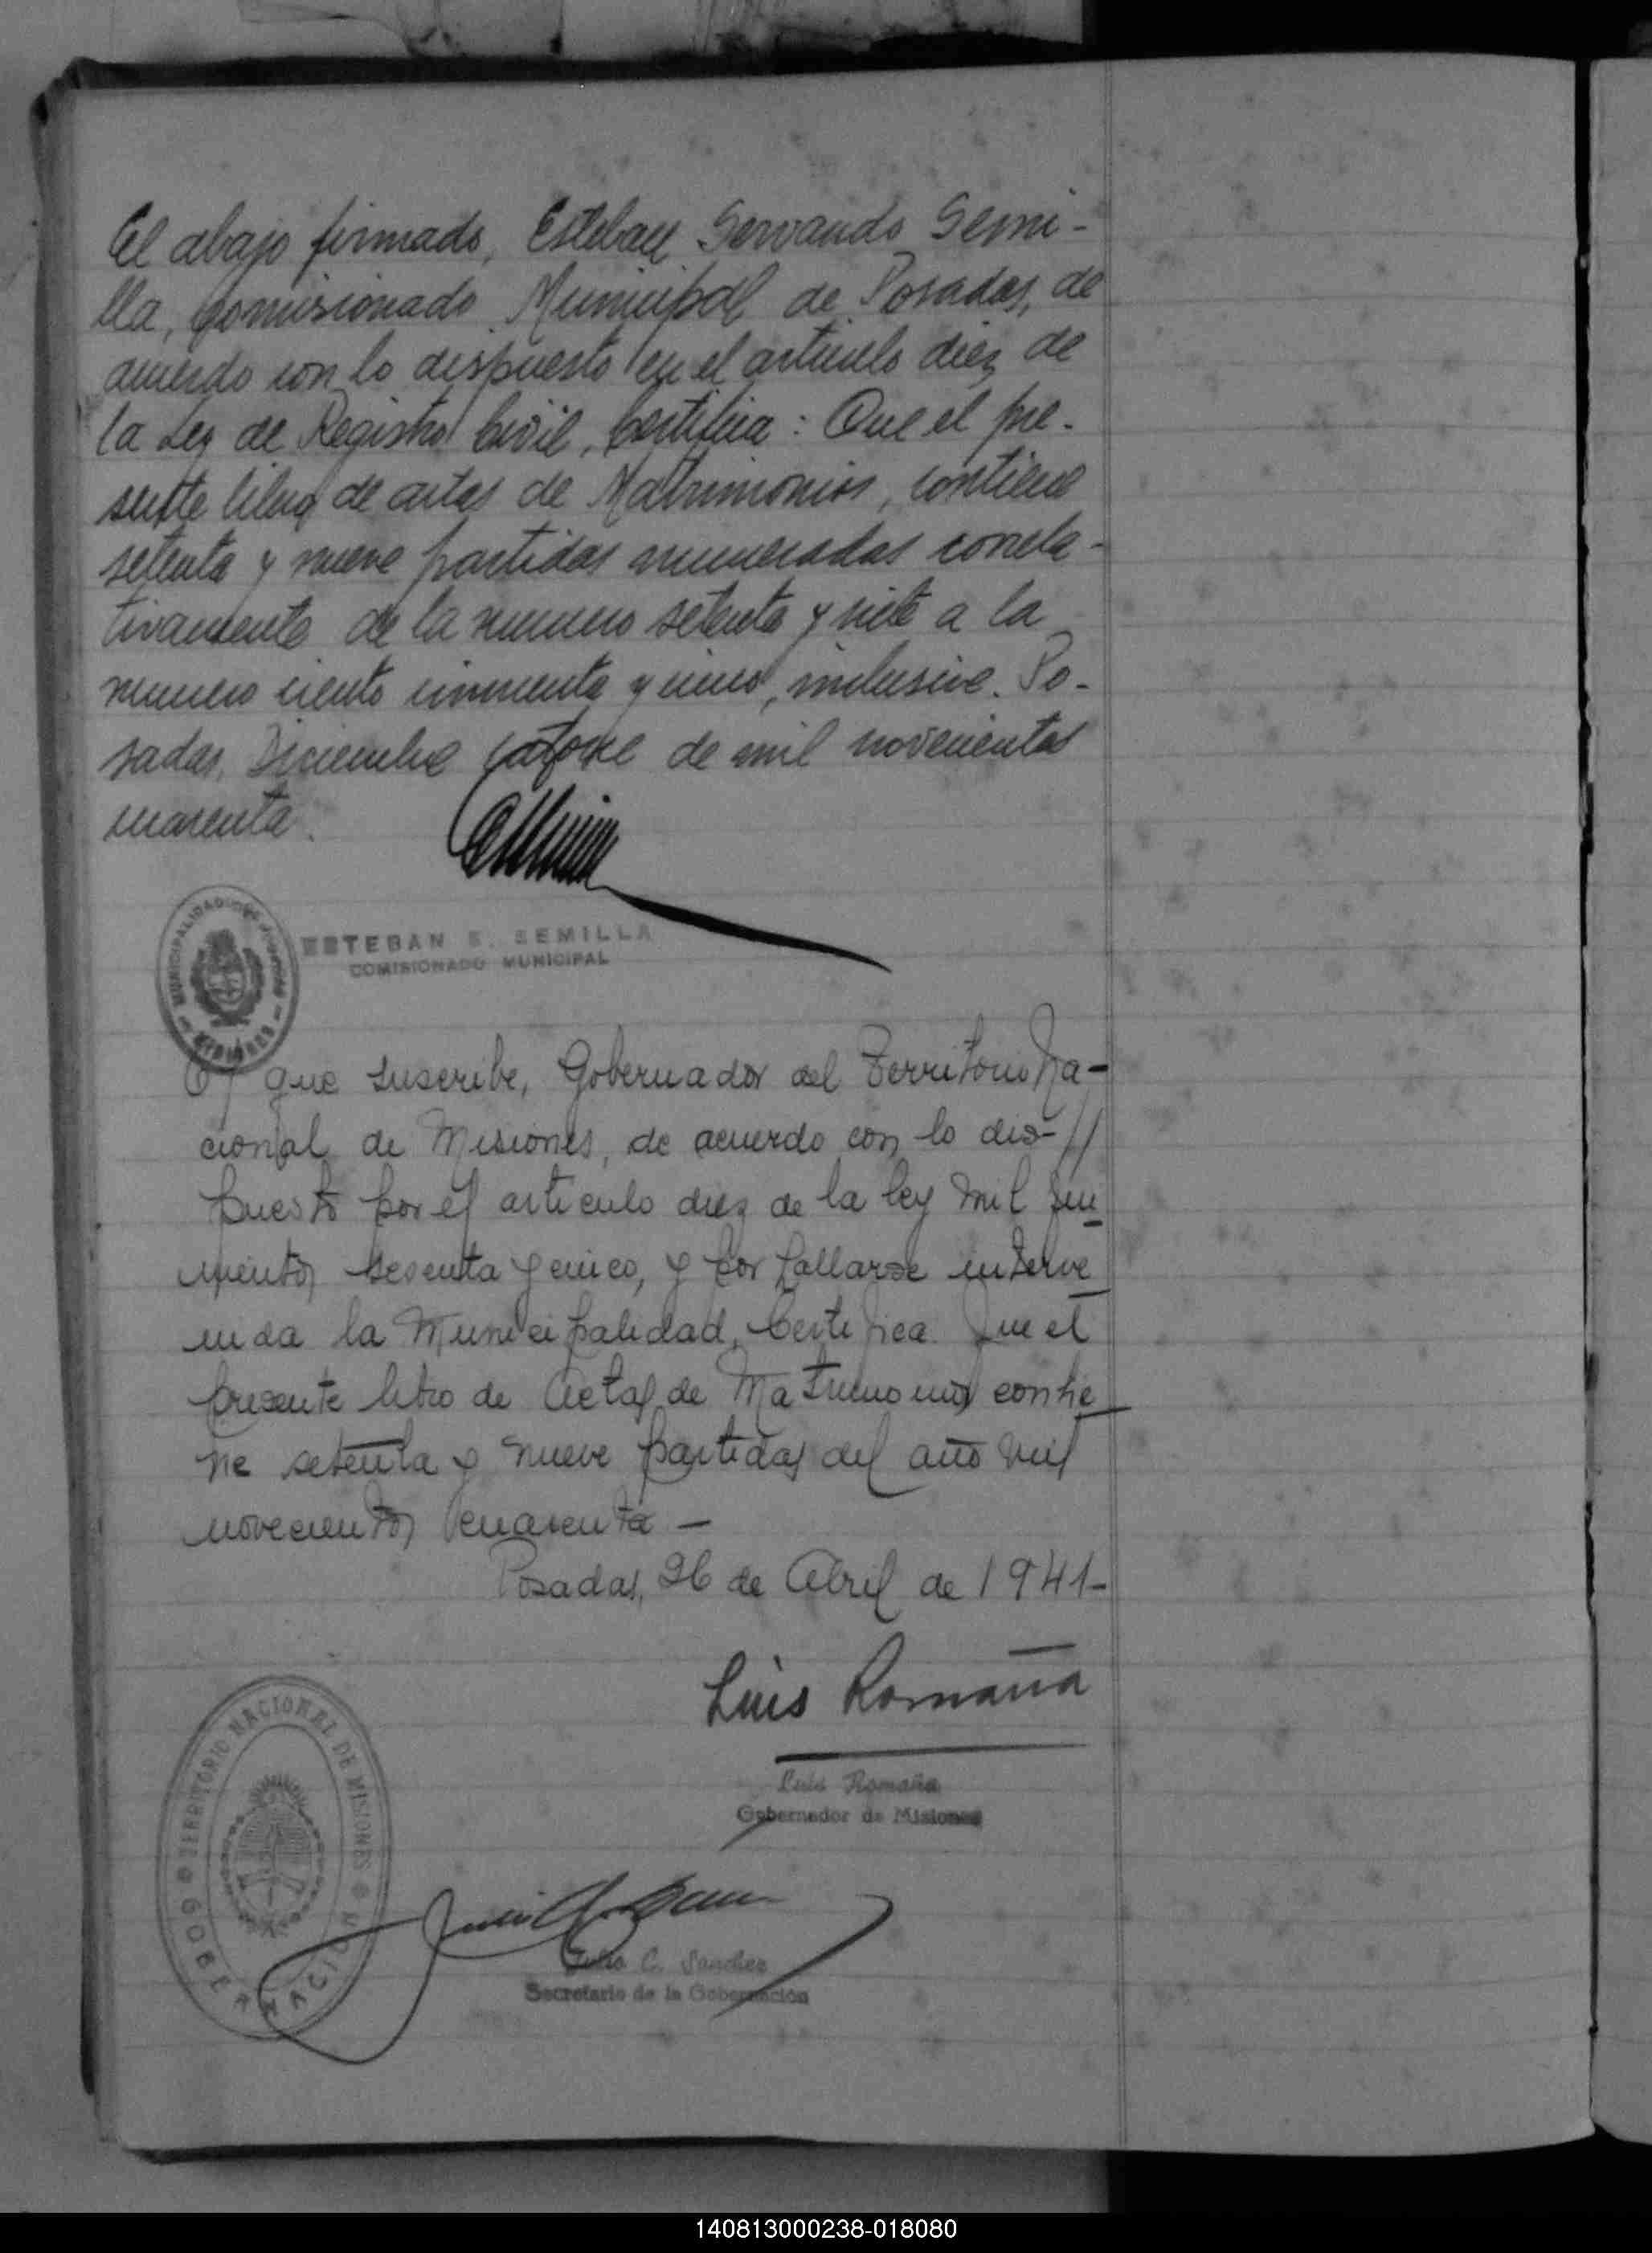 El abajo firmado, Esteban Servando Semi-
lla, Comisionado Municipal de Posadas, de
acuerdo con lo dispuesto en el articulo diez de
la Ley de Registro Civil, Certifica: Que el pre-
sente libro de actas de Matrimonios, contiene
setenta y nueve partidas numeradas correla-
tivamente de la numero setenta y siete a la
numero ciento cincuenta y cinco, inclusive. Po-
sadas, Diciembre catorce de mil novecientos
cuarenta.
MUNICIPALIDAD DE POSADAS
MISIONES
ESTEBAN S. SEMILLA
COMISIONADO MUNICIPAL
El que suscribe, Gobernador del Territorio Na-
cional de Misiones, de acuerdo con lo dis-//
puesto por el articulo diez de la ley mil qui
nientos sesenta y cinco, y por hallarse interve
nida la Municipalidad, Certifica. Que el
presente libro de Actas de Matrimonios contie
ne setenta y nueve partidas del año mil
novecientos cuarenta -
Posadas, 26 de Abril de 1941-
Luis Romaña
Luis Romaña
Gobernador de Misiones
TERRITORIO NACIONAL DE MISIONES
GOBERNACION
Julio C. Sanchez
Secretario de la Gobernación
140813000238-018080